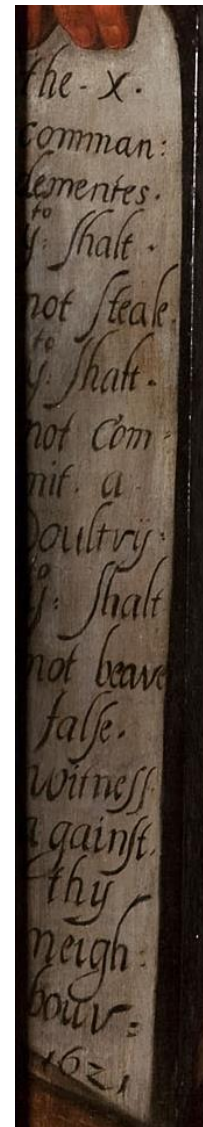 the - X ·
comman:
dementes ·
yᵗᵒ: shalt ·
not steale.
yᵗᵒ: shalt ·
not Com =
mit · a ·
Doultrij:
yᵗᵒ: shalt
not beave
false.
witness
against.
thy
neigh:
bour =
1621